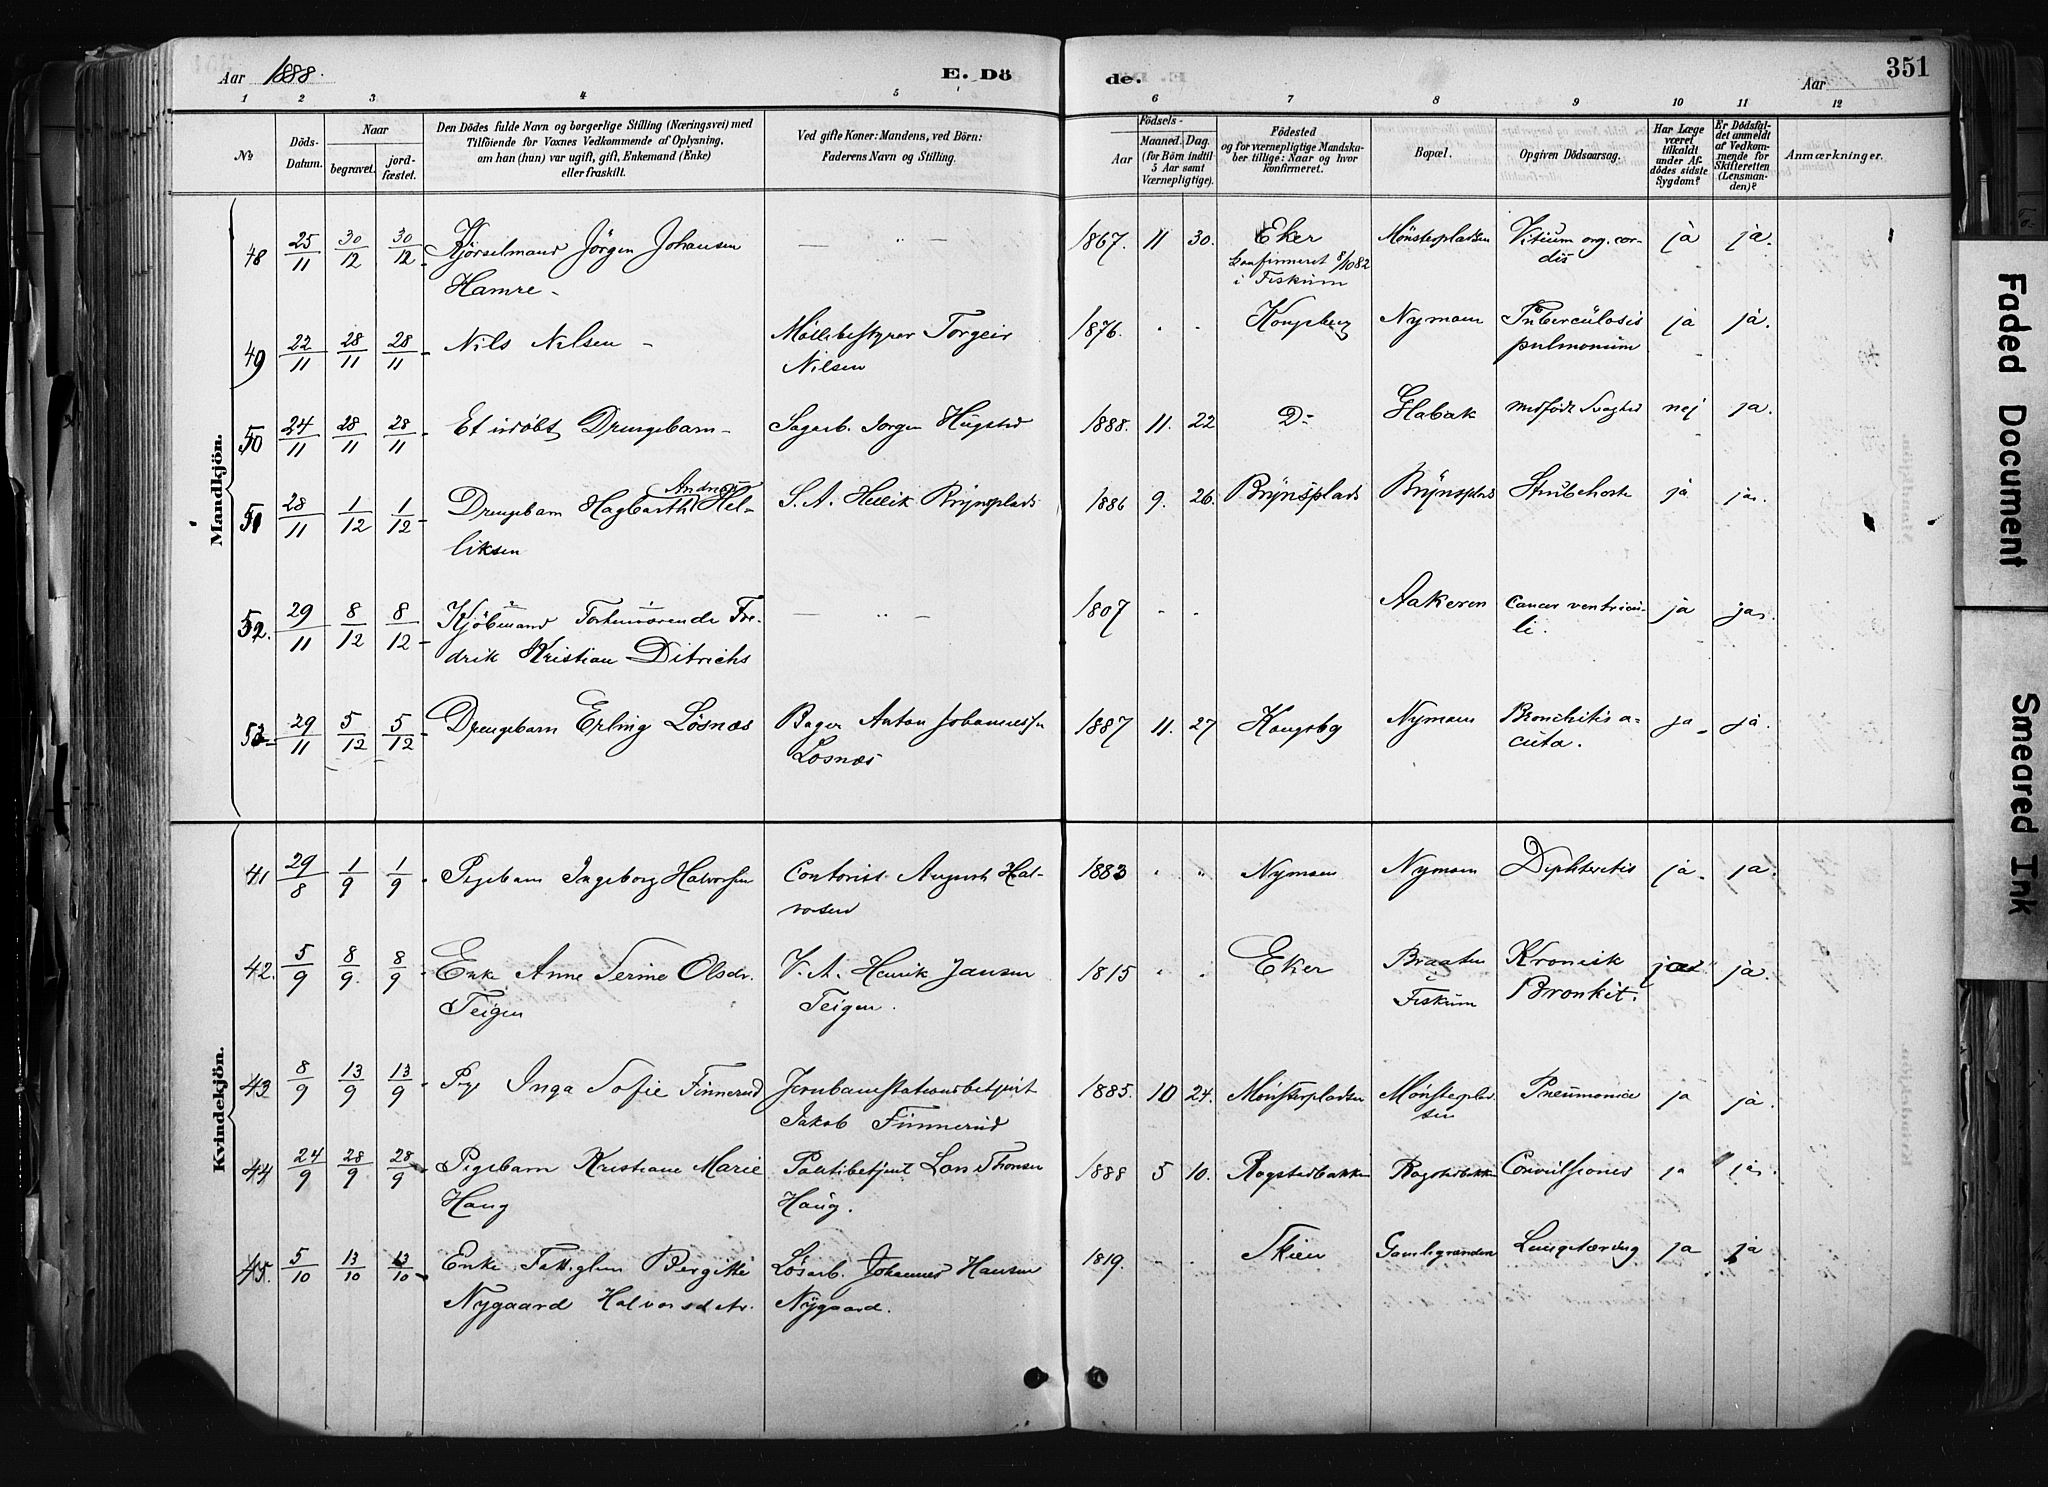 Aar 1888.
E. Döde.
Aar
351
1 2 3 4 5 6 7 8 9 10 11 12
No
Döds-Datum.
Naar
begravet.
jord-fæstet.
Den Dödes fulde Navn og borgerlige Stilling (Næringsvei) med
Tilföiende for Voxnes Vedkommende af Oplysning,
om han (hun) var ugift, gift, Enkemand (Enke)
eller fraskilt.
Ved gifte Koner: Mandens, ved Börn:
Faderens Navn og Stilling.
Födsels-
Aar
Maaned. Dag.
(for Börn indtil
5 Aar samt
Værnepligtige).
Födested
og for værnepligtige Mandska-
ber tillige: Naar og hvor
konfirmeret.
Bopæl.
Opgiven Dödsaarsag.
Har Læge
været
tilkaldt
under Af-
dödes sidste
Sygdom?
Er Dödsfal-
det anmeldt
af Vedkom-
mende for
Skifteretten
(Lensman-
den)?
Anmærkninger.
Mandkjön.
48 25/11 30/12 30/12 Kjörselmand Jörgen Johansen — " — 1867. 11 30. Eker Mønsterpladsen Vitium org. cor- ja ja.
Hamre - konfirmeret 8/10 82 dis
i Fiskum
49 22/11 28/11 28/11 Nils Nilsen - Møllebestyrer Torgeir 1876. " " Kongsberg Nymoen Tuberculosis ja ja.
Nilsen pulmonum
50 24/11 28/11 28/11 Et udöbt Drengebarn - Sagarb. Jørgen Hugsted 1888. 11. 22 D= Glabak medfødt Svaghed nej ja.
Andreas
51 28/11 1/12 1/12 Drengebarn Hagbarth Hel- S. A. Hellik Brynsplads 1886 9. 26. Brynsplads Brynsplads Strubehoste ja ja.
liksen
52. 29/11 8/12 8/12 Kjöbmand Forhenværende Fre- — " — 1807 " " Aakeren Cancer ventricu- ja ja.
drik Kristian Ditrichs li.
53 29/11 5/12 5/12 Drengebarn Erling Løsnæs Bager Anton Johannessen 1887 11. 27 Kongsbg Nymoen Bronchitis a- ja ja.
Løsnæs cuta.
Kvindekjön.
41 29/8 1/9 1/9 Pigebarn Ingeborg Halvorsen Contorist August Hal- 1883 " " Nymoen Nymoen Diphteritis ja ja.
vorsen
42. 5/9 8/9 8/9 Enke Anne Serine Olsdr. V. A. Henrik Jansen 1815 " " Eker Braaten Kronisk ja ja.
Teigen Teigen. i Fiskum Bronkit.
43 8/9 13/9 13/9 Pige Inga Sofie Finnerud Jernbanestationsbetjent 1885. 10 24. Mønsterpladsen Mønsterplad- Pneumonia ja ja.
Jakob Finnerud sen
44 24/9 28/9 28/9 Pigebarn Kristiane Marie Politibetjent Lars Thorsen 1888 5 10. Rogstadbakken Rogstadbakken Convulsiones ja ja.
Haug Haug.
45. 5/10 13/10 13/10 Enke Fattiglem Bergitte Løsarb. Johannes Hansen 1819. " Skien Gamlegrænden Lungetæring ja ja
Nygaard Halvorsdatr. Nygaard.
Faded Document
Smeared Ink